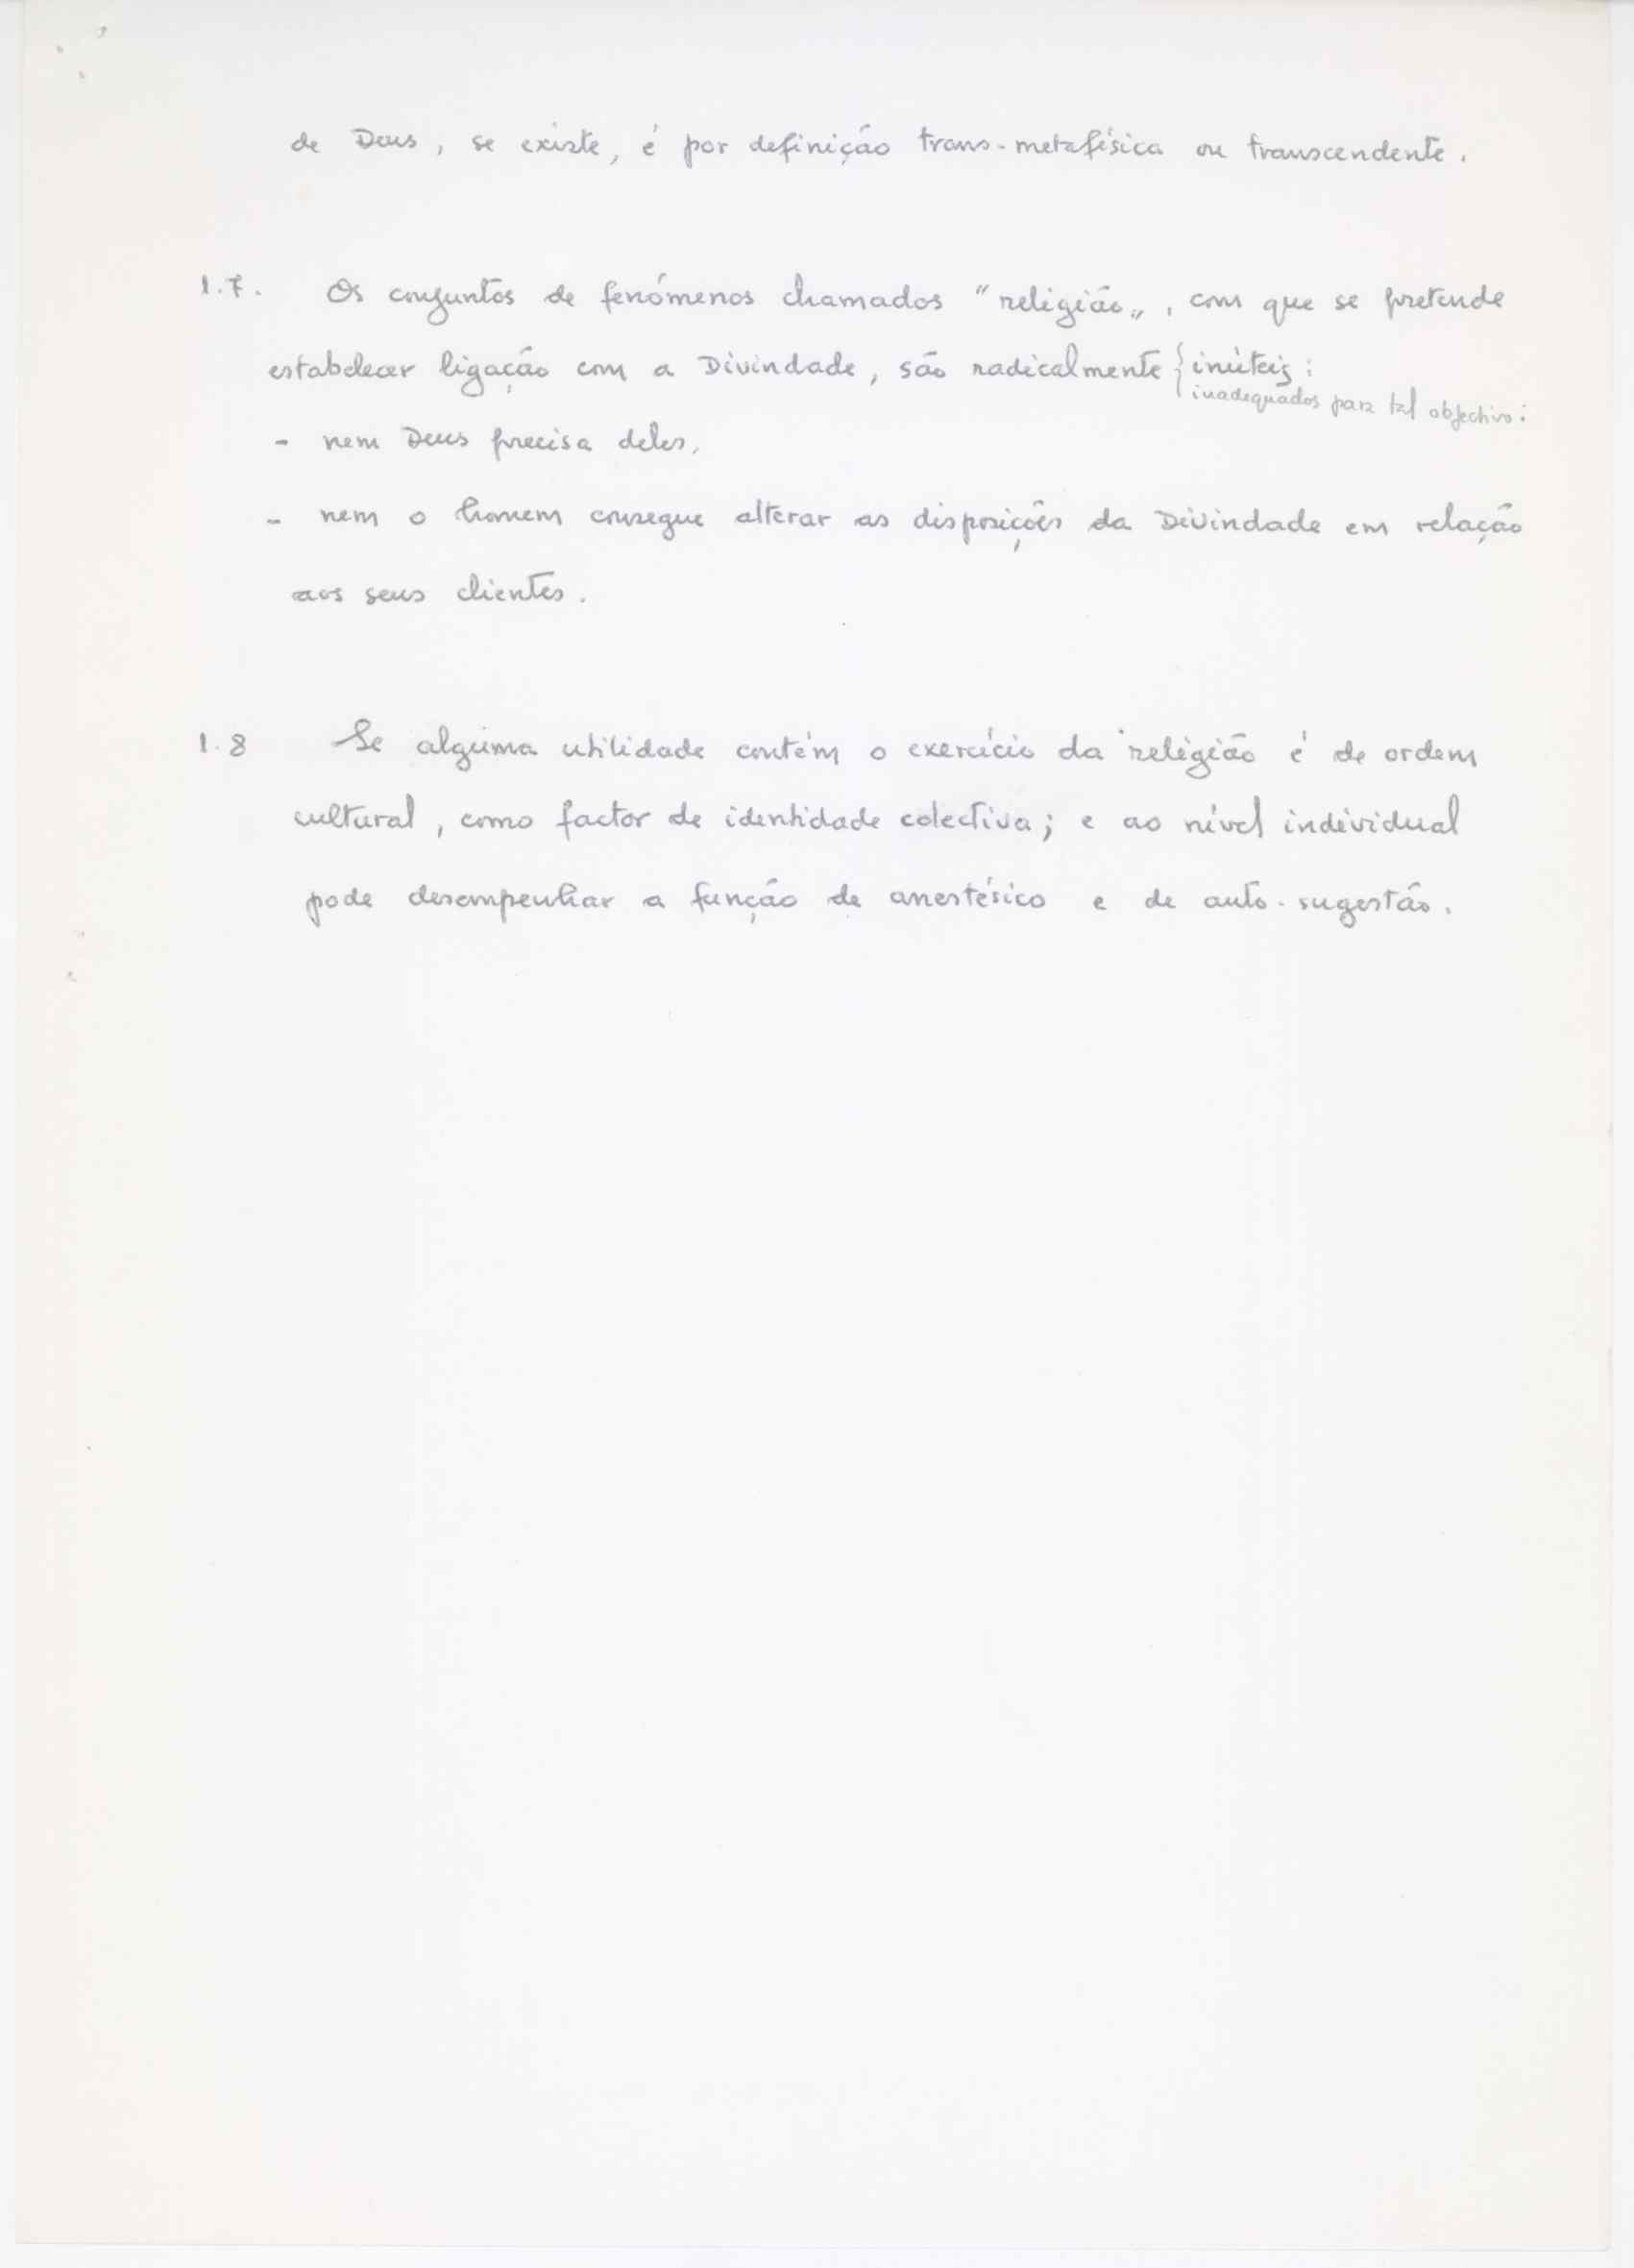 de Deus, se existe, é por definição trans-metafísica ou transcendente.
1.7. Os conjuntos de fenómenos chamados "religião", com que se pretende
estabelecer ligação com a Divindade, são radicalmente { inúteis:
inadequados para tal objectivo:
- nem Deus precisa deles,
- nem o homem consegue alterar as disposições da Divindade em relação
aos seus clientes.
1.8 Se alguma utilidade contém o exercício da religião é de ordem
cultural, como factor de identidade colectiva; e ao nível individual
pode desempenhar a função de anestésico e de auto-sugestão.